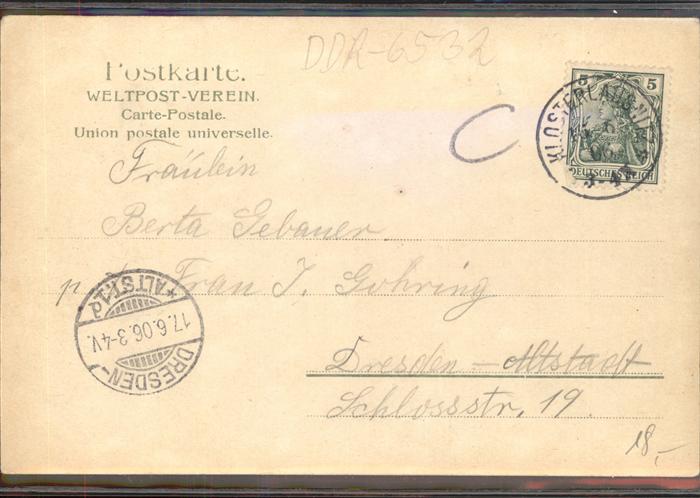 DDR-6532
Postkarte.
WELTPOST-VEREIN.
Carte-Postale.
Union postale universelle.
5 5
DEUTSCHES REICH
3-4
C
Fräulein
Berta Gebauer
Frau J. Gohring
Dresden - Altstadt
Schlossstr. 19.
DRESDEN-
*ALTST.1d
17.6.06.3-4V.
18,-